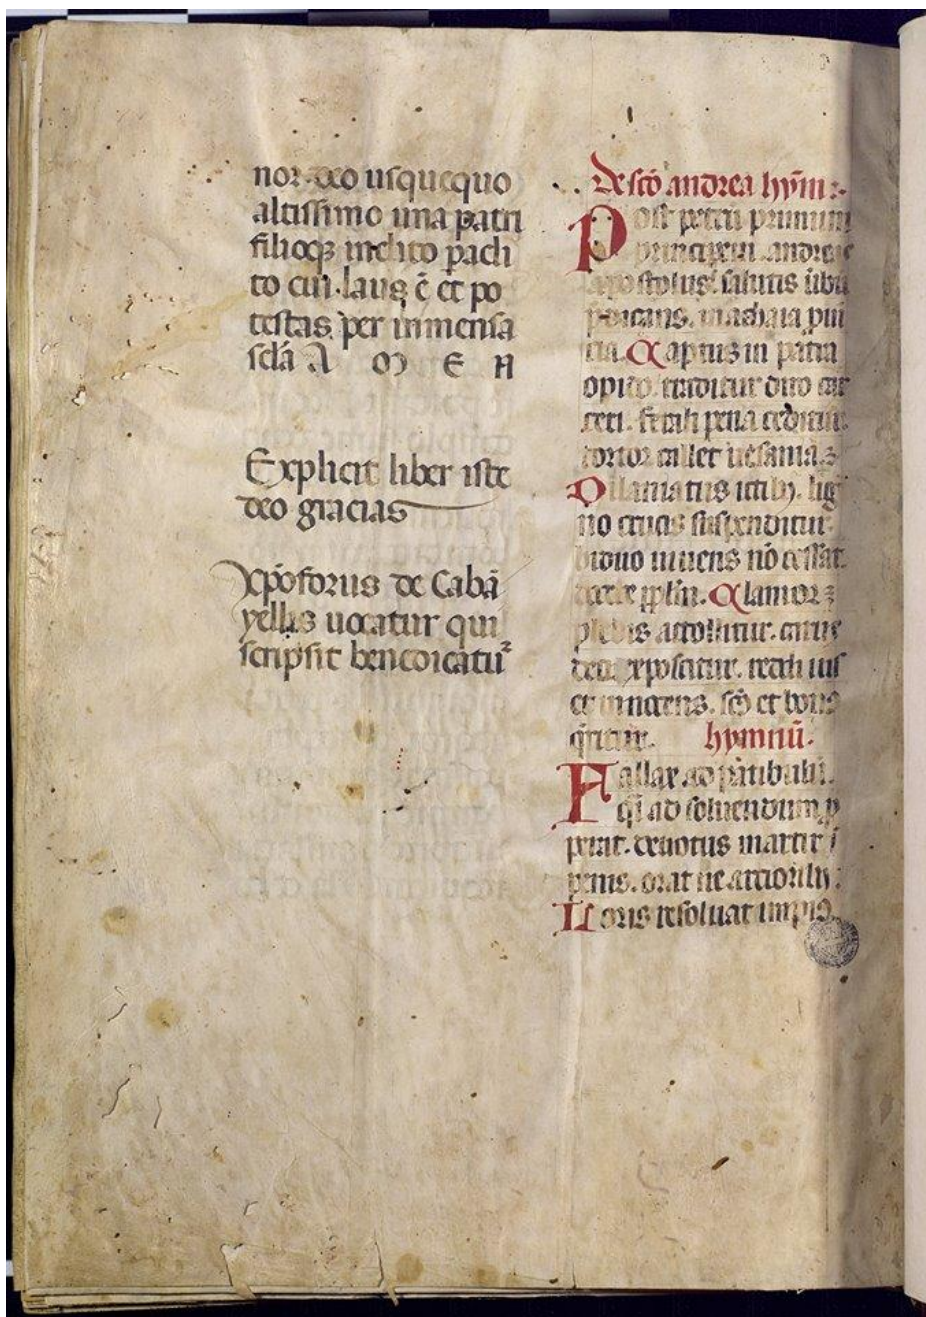 nor deo usquequo
altissimo una patri
filioq; inclito pacli
to cui laus ē et po
testas per inmensa
sclā A M E N
Explicit liber iste
deo gracias
Xp̄oforus de Cabā
yelles uocatur qui
scripsit benedicatur
De scō andrea hym̄
Post petrū primum
principem andreas
apostolus salutis ūba
p̄dicans in achaia
Captus in patra
opido traditur duro car
ceri
tortor callet uesania
lig
no crucis suspenditur
biduo uiuens nō cessat
docere pplm̄. Clamor
plebis attollitur
deo exposcitur. reddi ius
et innocens. scs et bonus
hymnū
Fallax ad patibulū
q̄ ad soluendum p
perat deuotus martir ī
penis orat ne
Loris resoluat impiis